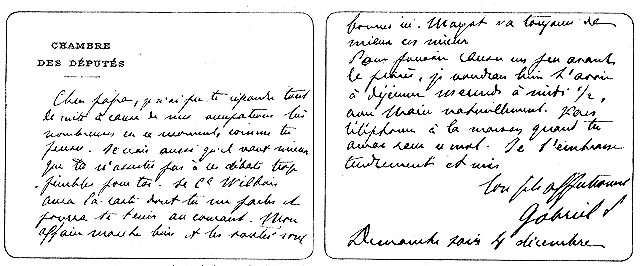 CHAMBRE
DES DÉPUTÉS
Cher papa, je n'ai pu te répondre tout
de suite à cause de mes occupations très
nombreuses en ce moment comme tu
penses. Je crois aussi qu'il vaut mieux
que tu n'assistes pas à ce débat trop
pénible pour toi. Le Ct Wilbois
aura la carte dont tu me parles et
pourra te tenir au courant. Mon
affaire marche bien et les santés sont
bonnes ici. va toujours de
mieux en mieux
Pour pouvoir causer un peu avant
le procès, je voudrais bien t'avoir
à déjeuner mercredi à midi 1/2,
avec Marie naturellement. Fais
téléphoner à la maison quand tu
auras reçu ce mot. Je t'embrasse
tendrement et suis
ton fils affectionné
Gabriel S
Dimanche soir 4 décembre